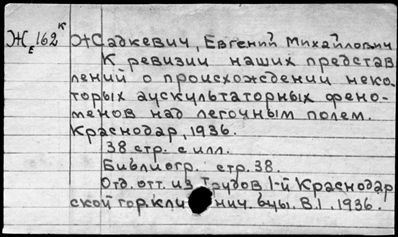 Ж Е 162 к Жадкевич, Евгений Михайлович
К ревизии наших представ
лений о происхождении неко-
торых аускультаторных фено-
менов над легочным полем.
Краснодар, 1936.
38 стр. с илл.
Библиогр. стр. 38.
Отд. отт. из Трудов 1-й Краснодар
ской гор. клинич. вцы. В.1. 1936.